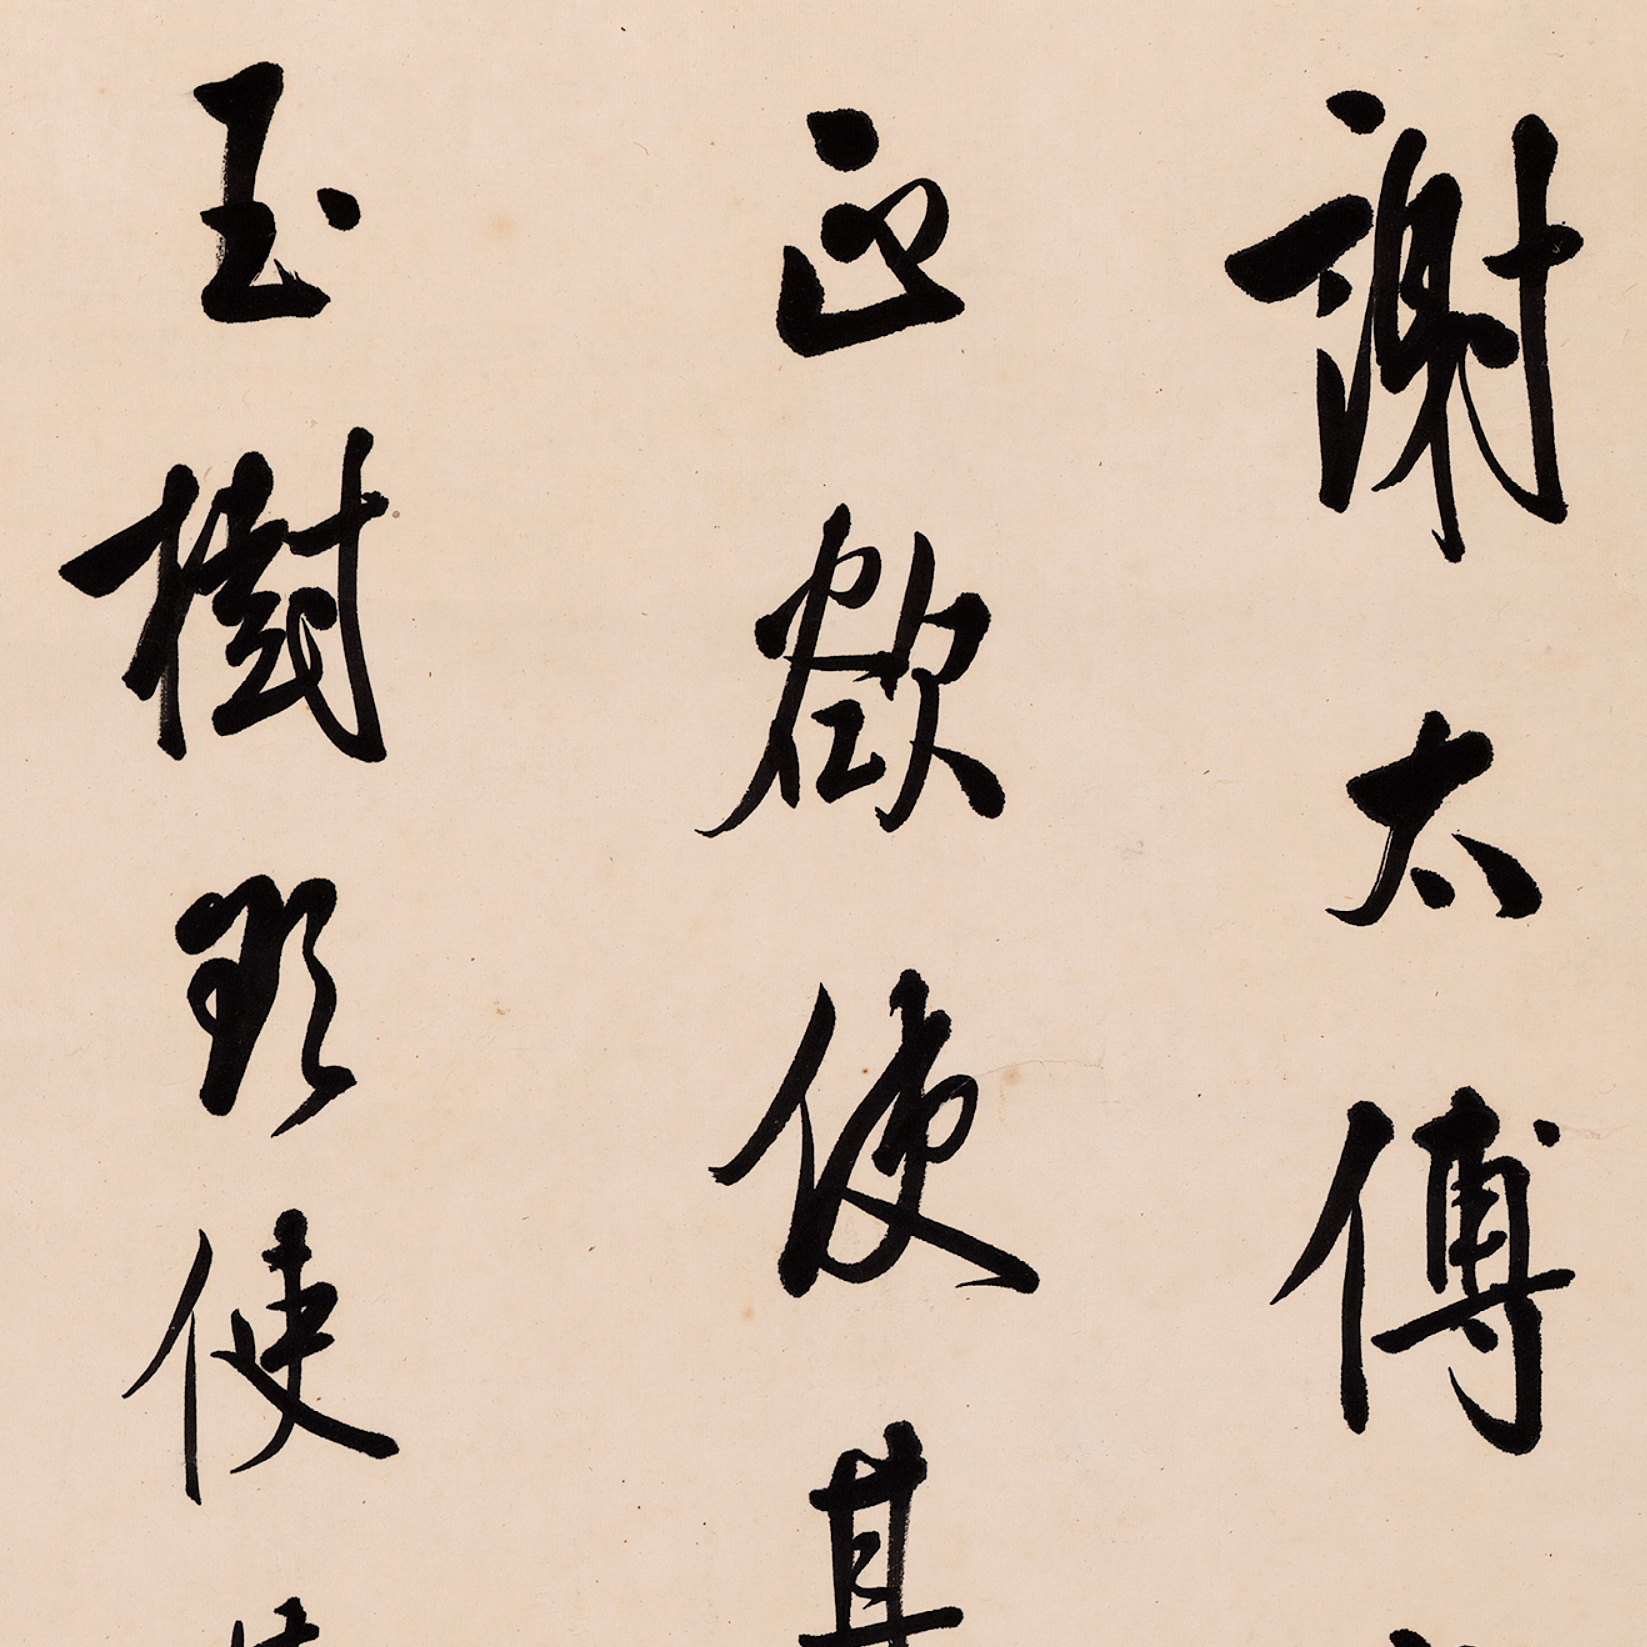 謝太傅
正欲使其
玉樹欲使